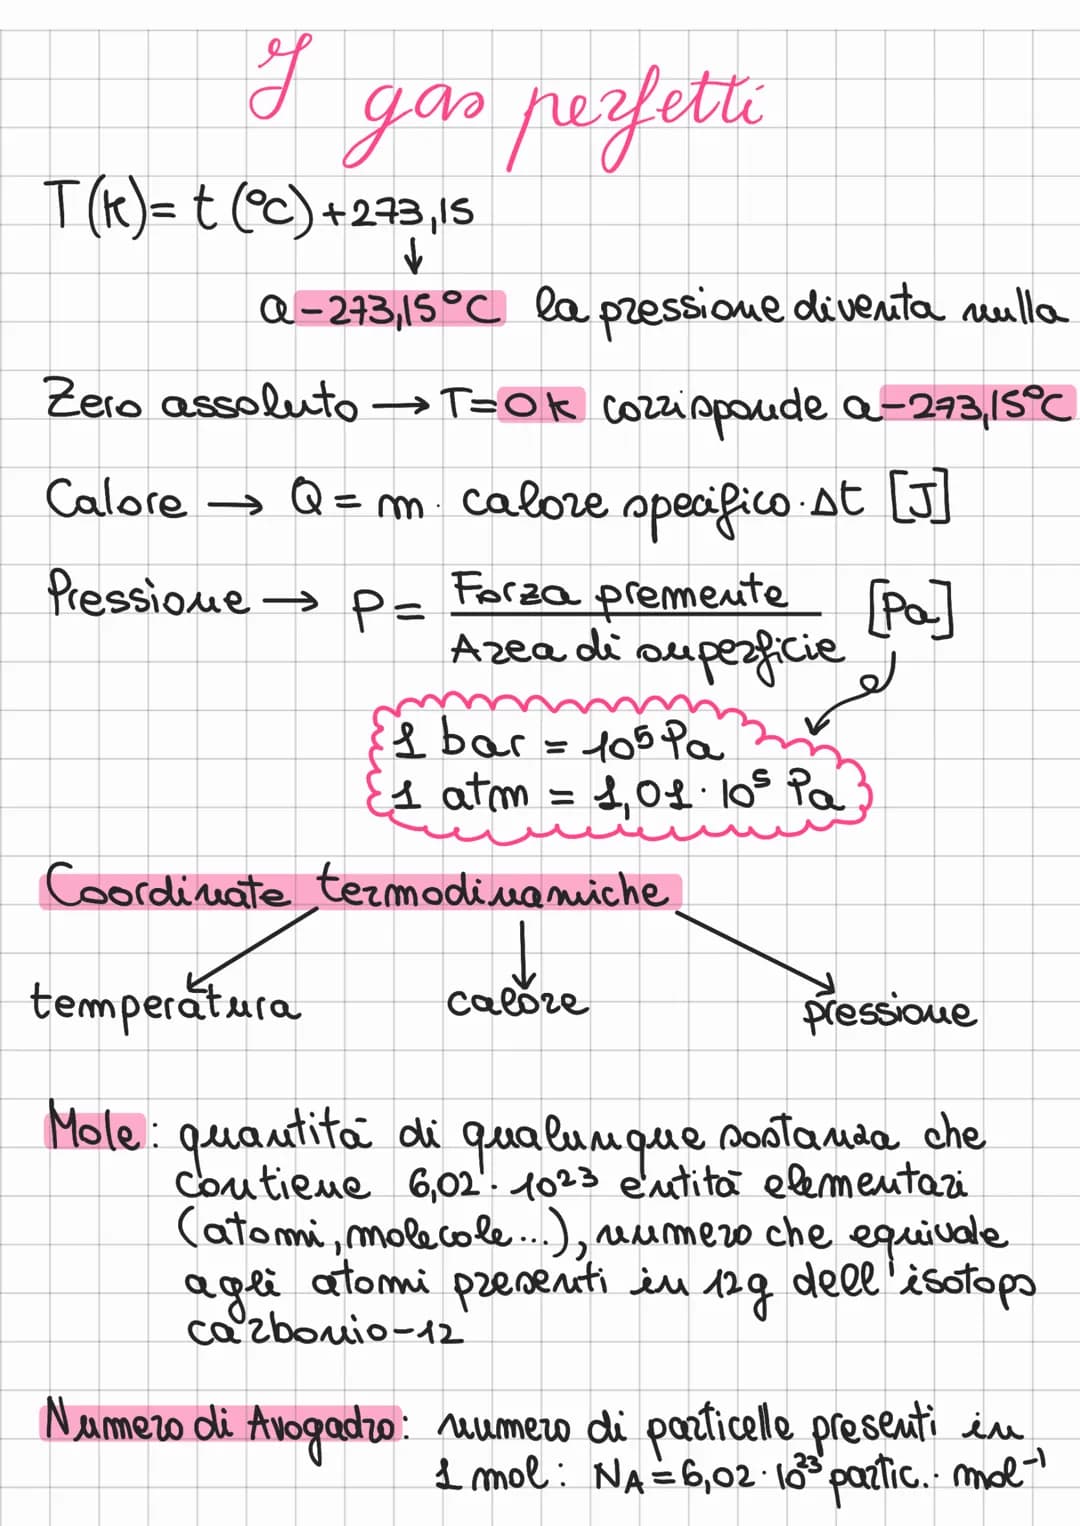 I gas perfetti
T(k)= t (°C) +273,15
↓
a -273,15°C la pressione diventa nulla
Zero assoluto → T=0k corrisponde a -273,15°C
Calore → Q = m · calore specifico · Δt [J]
Pressione → P = Forza premente / Area di superficie [Pa]
1 bar = 10⁵ Pa
1 atm = 1,01 · 10⁵ Pa
Coordinate termodinamiche
temperatura calore pressione
Mole: quantità di qualunque sostanza che
contiene 6,02 · 10²³ entità elementari
(atomi, molecole...), numero che equivale
agli atomi presenti in 12g dell'isotopo
carbonio-12
Numero di Avogadro: numero di particelle presenti in
1 mol: NA = 6,02 · 10²³ partic. · mol⁻¹